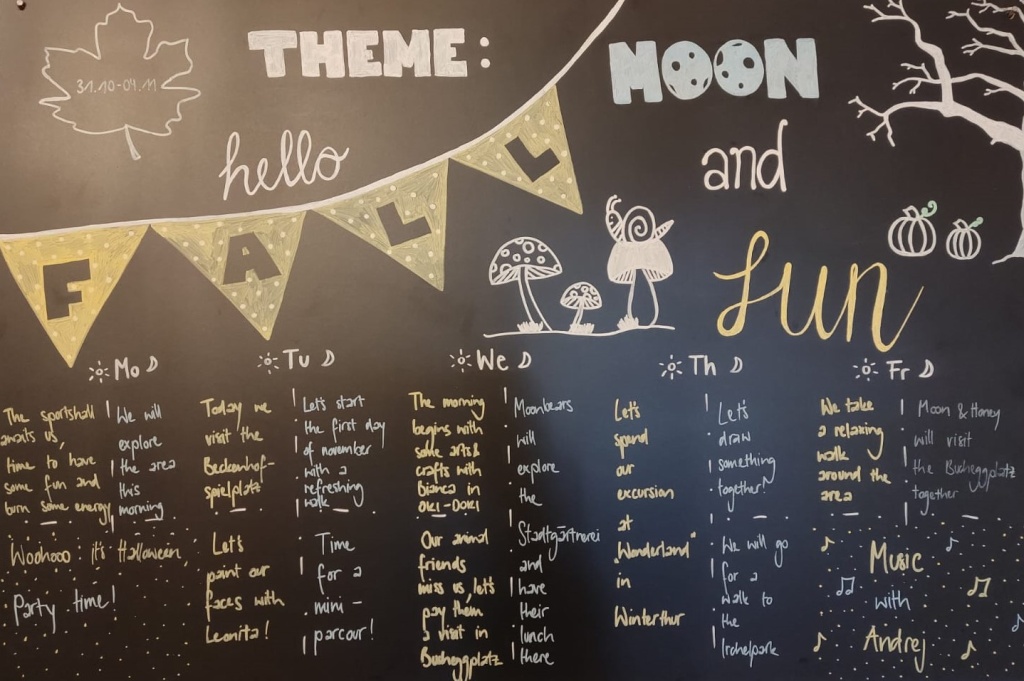 31.10-04.11
THEME:
MOON
hello
and
FALL
Fun
Mo
The sportshall
awaits us,
time to have
some fun and
burn some energy
We will
explore
the area
this
morning
Woohooo: it's Halloween
Party time!
Tu
Today we
visit the
Beckenhof-
spielplatz
Let's start
the first day
of november
with a
refreshing
walk
Let's
paint our
faces with
Leonita!
Time
for a
mini-
parcour!
We
The morning
begins with
some arts &
crafts with
Bianca in
Oki-Doki
Moonbears
will
explore
the
Stadtgärtnerei
and
have
their
lunch
there
Our animal
friends
miss us, let's
pay them
a visit in
Bucheggplatz
Th
Let's
spend
our
excursion
at
"Wonderland"
in
Winterthur
Let's
draw
something
together!
We will go
for a
walk to
the
Irchelpark
Fr
We take
a relaxing
walk
around the
area
Moon & Honey
will visit
the Bucheggplatz
together
Music
with
Andrej